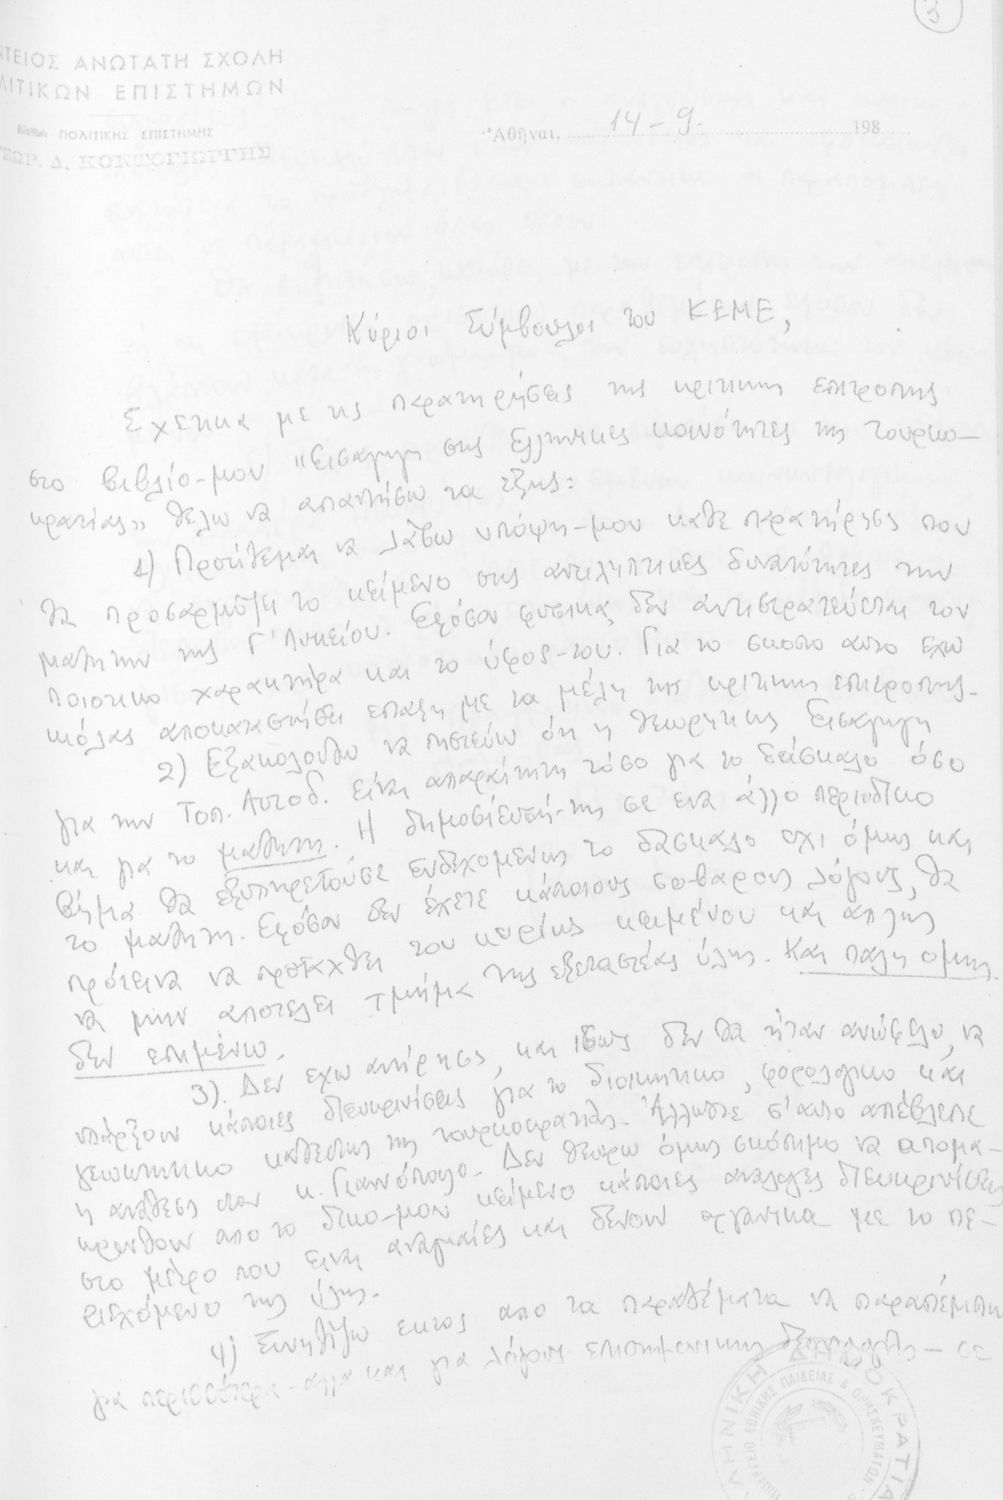 3
ΝΤΕΙΟΣ ΑΝΩΤΑΤΗ ΣΧΟΛΗ
ΛΙΤΙΚΩΝ ΕΠΙΣΤΗΜΩΝ
ΠΟΛΙΤΙΚΗΣ ΕΠΙΣΤΗΜΗΣ
ΓΕΩΡ. Δ. ΚΟΝΤΟΓΙΩΡΓΗΣ
Ἀθῆναι, 14-9. 198
Κύριοι Σύμβουλοι του ΚΕΜΕ,
Σχετικα με τις παρατηρήσεις της κριτικης επιτροπης
στο βιβλίο-μου "Εισαγωγη στις Ελληνικες κοινότητες της τουρκο-
κρατίας" θελω να απαντήσω τα εξης:
1) Προτίθεμαι να λάβω υπόψη-μου καθε παρατήρησις που
θα προσαρμόζη το κείμενο στις αντιληπτικες δυνατότητες των
μαθητων της Γ' Λυκείου. Εφόσον φυσικα δεν αντιστρατεύεται τον
ποιοτικο χαρακτήρα και το ύφος-του. Για το σκοπο αυτο εχω
κιόλας αποκαταστήσει επαφη με τα μέλη της κριτικης επιτροπης.
2) Εξακολουθω να πιστεύω ότι η θεωρητικη Εισαγωγη
για την Τοπ. Αυτοδ. είναι απαραίτητη τόσο για το δάσκαλο όσο
και για το μαθητη. Η δημοσίευσή-της σε ενα άλλο περιοδικο
θέμα θα εξυπηρετούσε ενδεχομένως το δάσκαλο οχι όμως και
το μαθητη. Εφόσον δεν έχετε κάποιους σοβαρους λόγους, θα
πρότεινα να προταχθει του κυρίως κειμένου και απλως
να μην αποτελει τμήμα της εξεταστέας ύλης. Και παλι ομως
δεν επιμένω.
3). Δεν εχω αντίρηση, και ίσως δεν θα ήταν ανώφελο, να
υπάρξουν κάποιες διευκρινίσεις για το διοικητικο, φορολογικο και
γεωκτητικο καθεστως της τουρκοκρατίας. Άλλωστε σ'αυτο απέβλεπε
η αναθεση στον κ. Γιαννόπουλο. Δεν θεωρω όμως σκόπιμο να απομα-
κρυνθουν απο το δικο-μου κείμενο κάποιες αναλογες διευκρινίσεις
στο μέτρο που ειναι αναγκαίες και δενουν οργανικα με το πε-
ριεχόμενο της ύλης.
4) Συνηθίζω εκτος απο τα παραθέματα να παραπέμπω
για περισσότερα - αλλα και για λόγους επιστημονικης - σε
ΕΛΛΗΝΙΚΗ ΔΗΜΟΚΡΑΤΙΑ
ΥΠΟΥΡΓΕΙΟ ΕΘΝΙΚΗΣ ΠΑΙΔΕΙΑΣ & ΘΡΗΣΚΕΥΜΑΤΩΝ